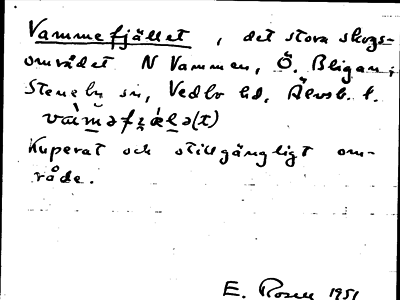 Vammefjället, det stora skogs-
området N Vammen, Ö. Bligan,
Steneby sn, Vedbo hd, Älvsb. l.
vàm̀əfjæ̀lə(t)
Kuperat och otillgängligt om-
råde.
E. Rosell 1951